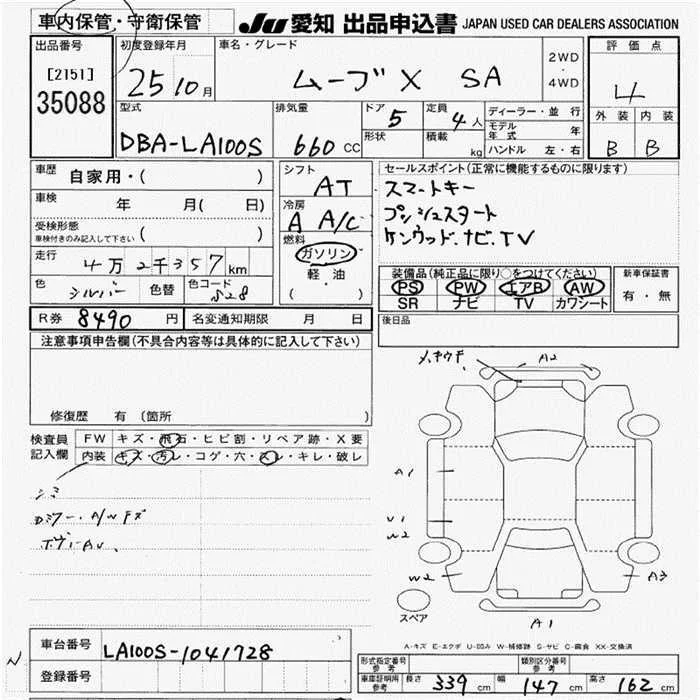 車内保管・守衛保管
JU 愛知 出品申込書 JAPAN USED CAR DEALERS ASSOCIATION
出品番号 初度登録年月 車名・グレード 2WD・4WD 評価点
[2151]
35088 25 10月 ムーブX SA 4
型式 排気量 ドア 5 定員 4人 ディーラー・並行 外装 内装
DBA-LA100S 660 CC 形状 積載 kg モデル年式 年 B B
ハンドル 左・右
車歴 自家用・( ) シフト AT セールスポイント(正常に機能するものに限ります)
車検 年 月( 日) 冷房 A A/C スマートキー
受検形態 プッシュスタート
車検付きのみ記入して下さい ( ) 燃料 ガソリン ケンウッド.ナビ.TV
走行 4万2千357km 軽・油
色 シルバー 色替 色コード S28 ( ・ ) 装備品(純正品に限り○をつけてください) 新車保証書
PS PW エアB AW 有・無
SR ナビ TV カワシート
R券 8490円 名変通知期限 月 日 後日品
注意事項申告欄(不具合内容等は具体的に記入して下さい)
修復歴 有 (箇所
検査員 FW キズ・飛石・ヒビ割・リペア跡・X要
記入欄 内装 キズ・汚レ・コゲ・穴・スレ・キレ・破レ
シミ
A/Wキズ
A2
A1
U1
W2
W2
A3
スペア
A1
A-キズ E-エクボ U-凹み W-補修跡 S-サビ C-腐食 XX-交換済
車台番号 LA100S-1041728
登録番号
形式指定番号 参考 類別区分番号 参考
車庫証明用 参考 長さ 339 cm 幅 147 cm 高さ 162 cm